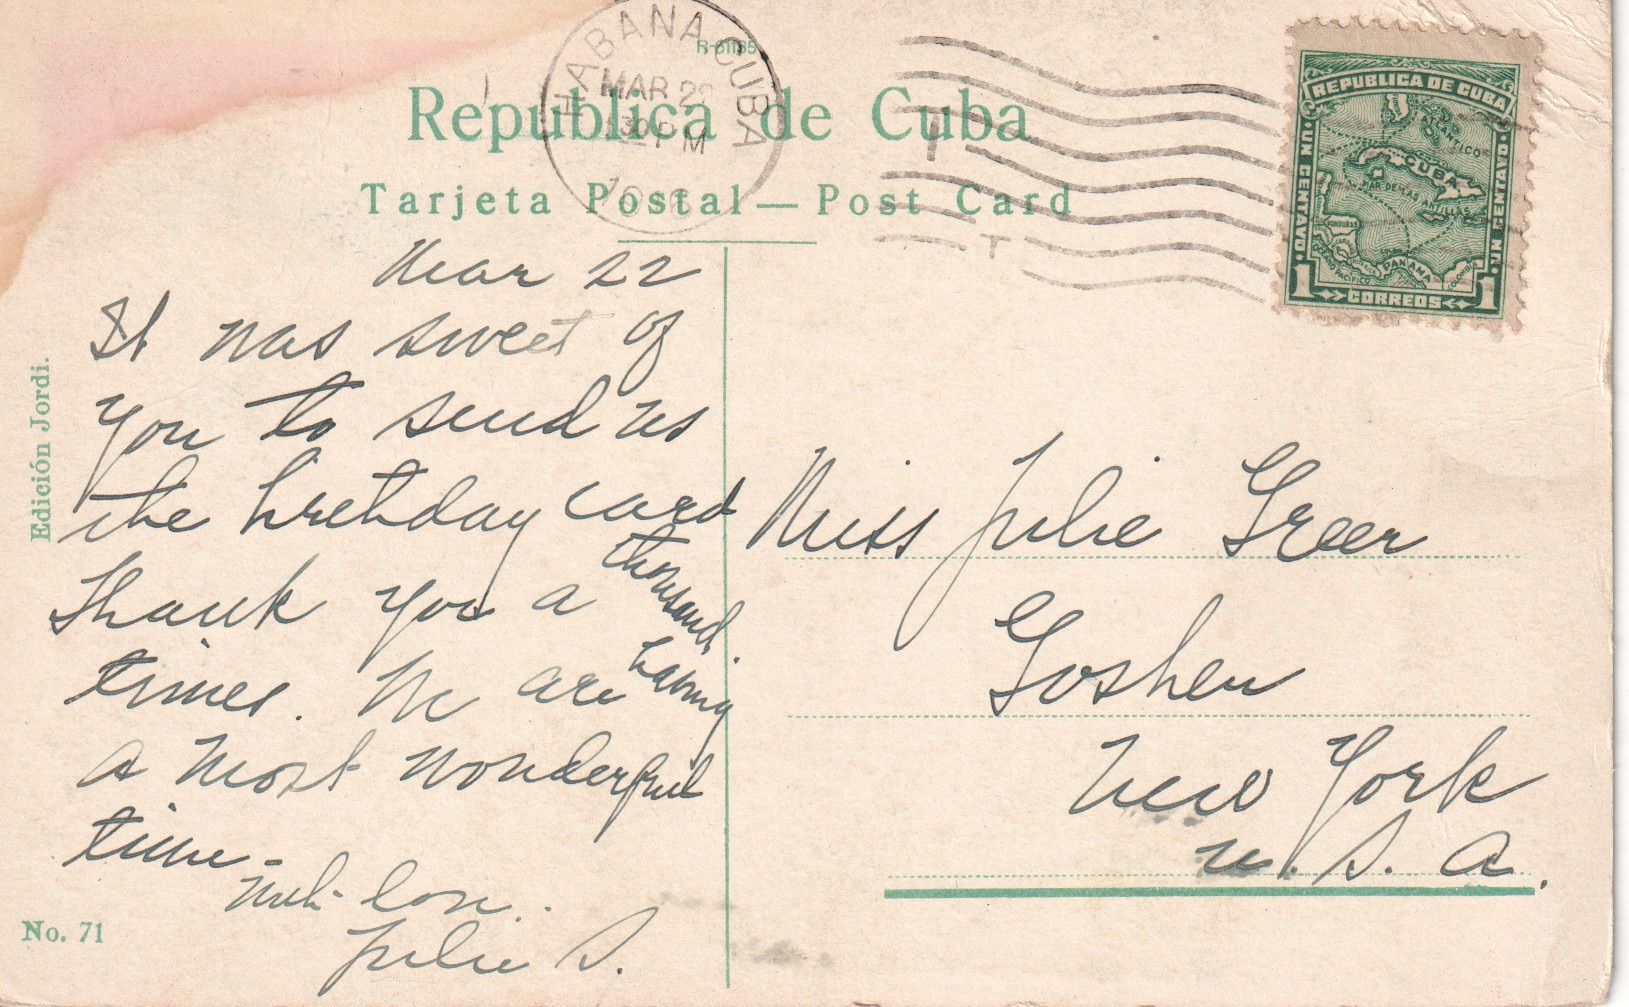 R-61185
HABANA, CUBA
MAR 22
30 PM
Republica de Cuba
Tarjeta Postal — Post Card
REPUBLICA DE CUBA
UN CENTAVO
UN CENTAVO
ATLANTICO
CUBA
MAR DE LAS ANTILLAS
HONDURAS
PANAMA
COLOMBIA
1 CORREOS 1
Mar 22
It was sweet of
you to send us
the birthday card
Thank you a thousand
times. We are having
a most wonderful
time -
Much love..
Julie S.
Miss Julie Greer
Goshen
New York
U. S. A.
Edición Jordi.
No. 71